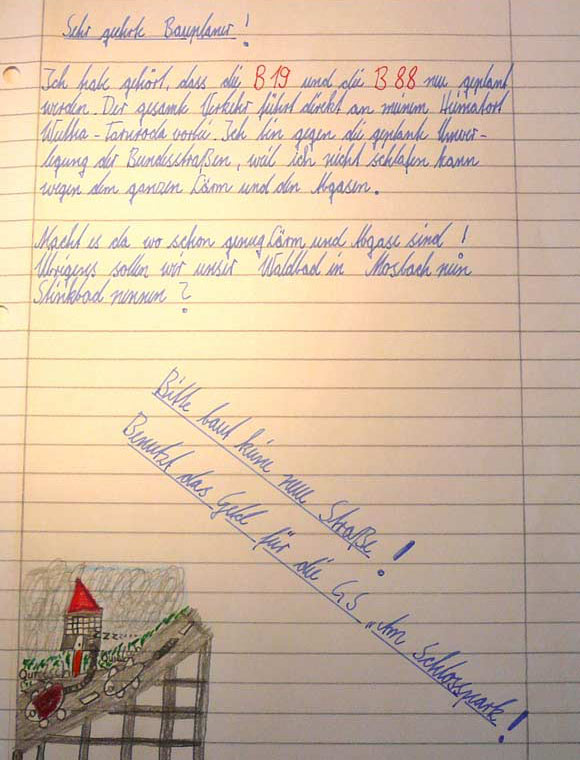 Sehr geehrte Bauplaner!
Ich habe gehört, dass die B 19 und die B 88 neu geplant
werden. Der gesamte Verkehr führt direkt an meinem Heimatort
Wutha-Farnroda vorbei. Ich bin gegen die geplante Umver-
legung der Bundesstraßen, weil ich nicht schlafen kann
wegen dem ganzen Lärm und den Abgasen.
Macht es da wo schon genug Lärm und Abgase sind!
Übrigens sollen wir unser Waldbad in Mosbach nun
Stinkbad nennen?
Bitte baut keine neue Straße!
Benutzt das Geld für die GS „Am Schlosspark!
zzzz